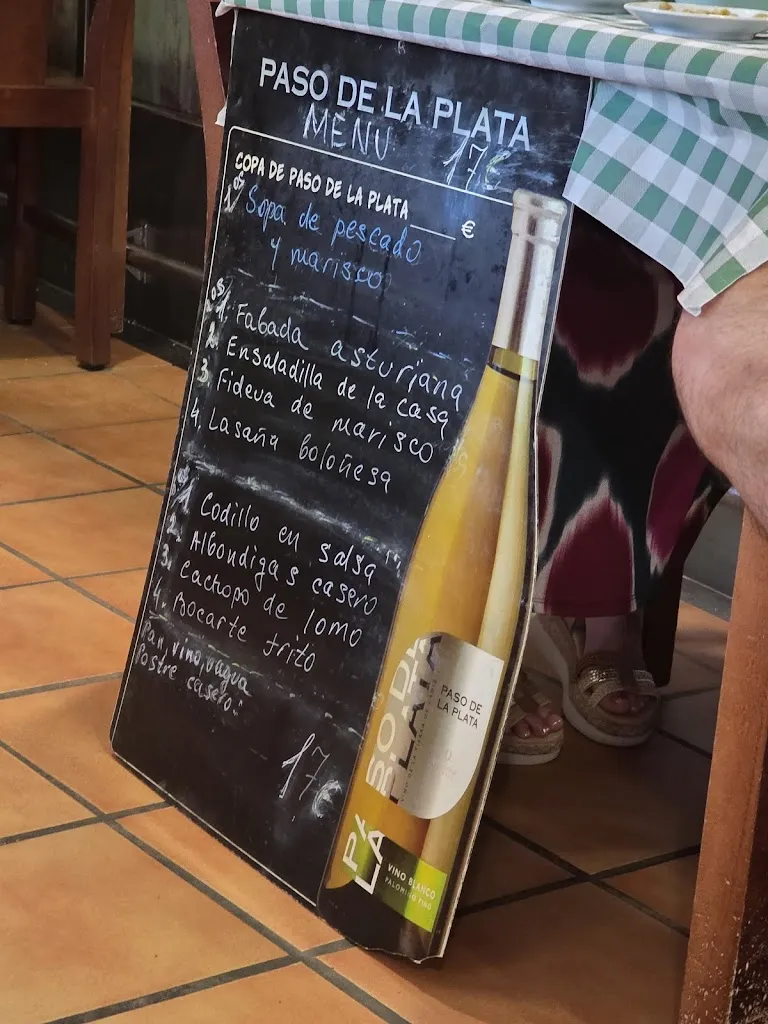 PASO DE LA PLATA
MENU 17€
COPA DE PASO DE LA PLATA ____ €
1º Sopa de pescado
y marisco
1. Fabada asturiana
2. Ensaladilla de la casa
3. Fideua de marisco
4. Lasaña boloñesa
Codillo en salsa
2. Albondigas casero
3. Cachopo de lomo
4. Bocarte frito
Pan, vino, o agua
Postre casero.
17€
PASO DE
LA PLATA
PASO DE
LA PLATA
VINO BLANCO
PALOMINO FINO